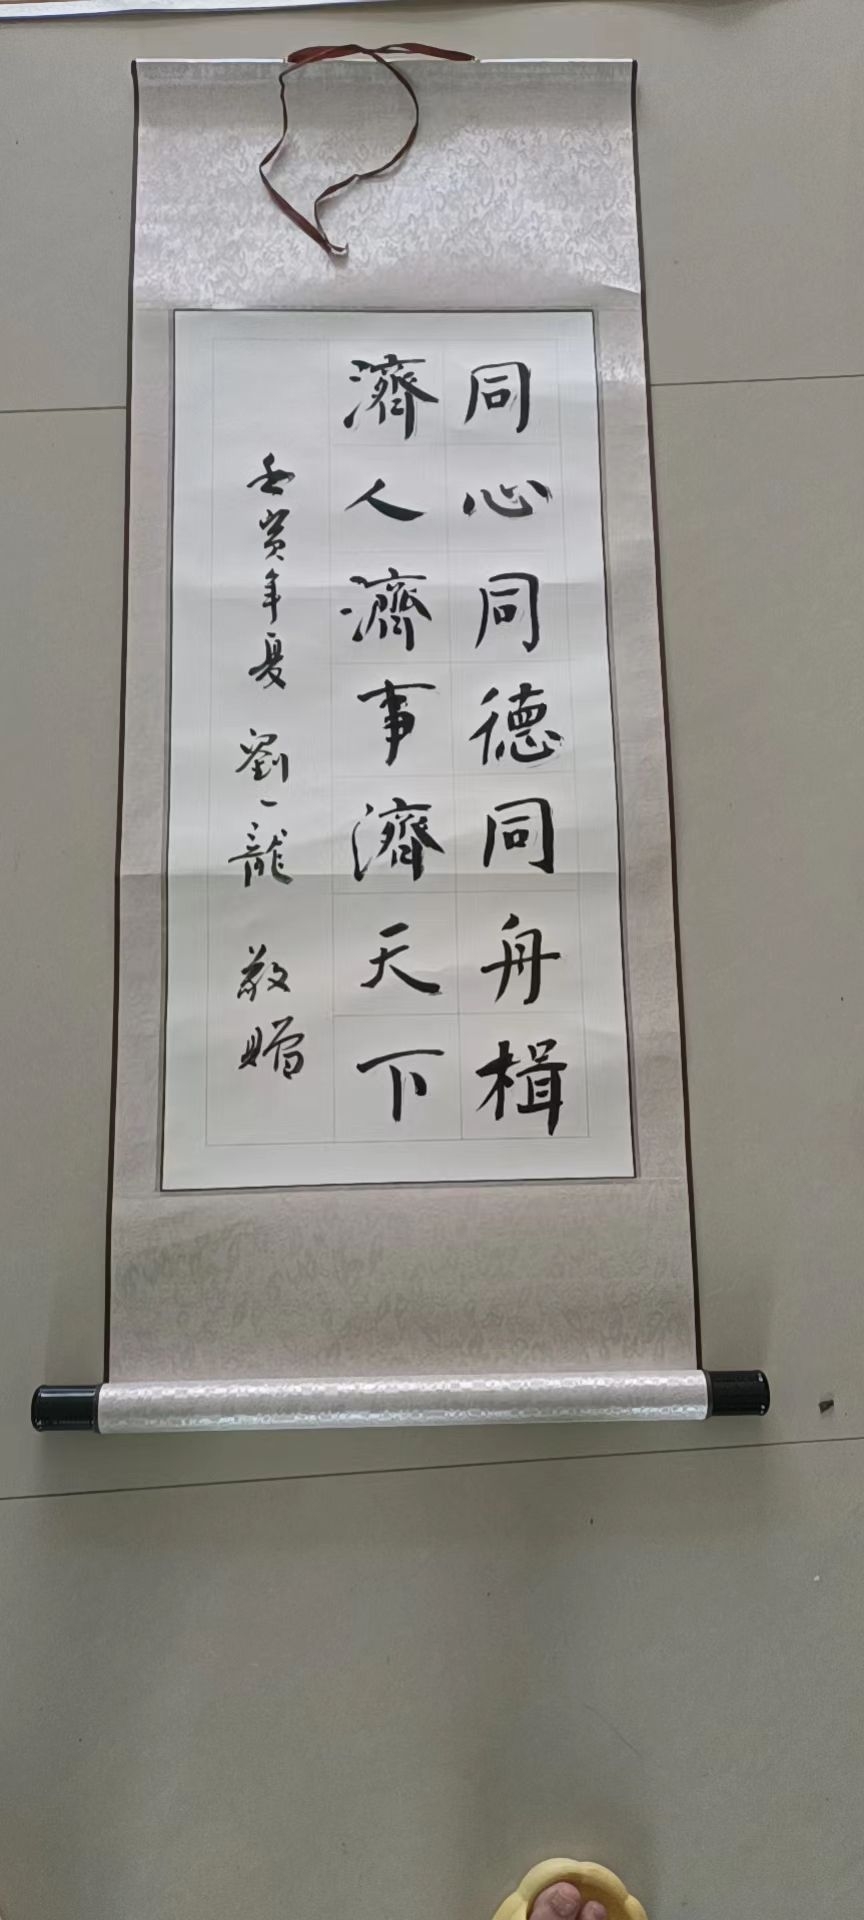 同心同德同舟楫
濟人濟事濟天下
壬寅年夏 劉一龍 敬贈